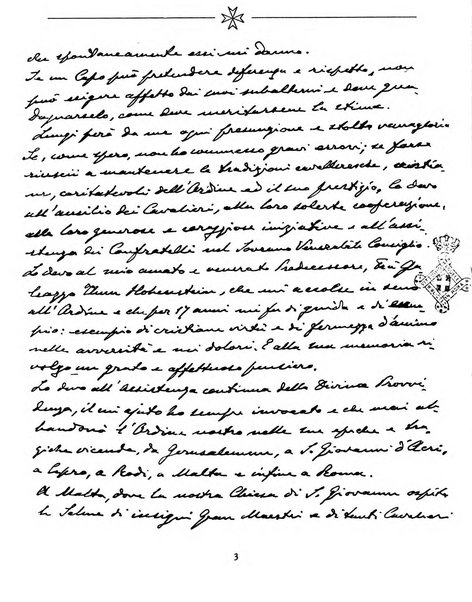 che spontaneamente essi mi danno.
Se un Capo può pretendere deferenza e rispetto, non
può esigere affetto dai suoi subalterni e deve gua-
dagnarselo, come deve meritarsene la stima.
Lungi però da me ogni presunzione e stolta vanagloria
Se, come spero, non ho commesso gravi errori; se forse
riuscii a mantenere le tradizioni cavalleresche, cristia
ne, caritatevoli dell'Ordine ed il suo prestigio, lo devo
all'ausilio dei Cavalieri, alla loro solerte cooperazione,
alla loro generose e coraggiose iniziative e all'assi-
stenza dei Confratelli nel Sovrano Venerabile Consiglio.
Lo devo al mio amato e venerato Predecessore, Fra Ga-
leazzo Thun Hohenstein, che mi accolse in seno
all'Ordine e che per 17 anni mi fu di guida e di esem-
pio: esempio di cristiane virtù e di fermezza d'animo
nelle avversità e nei dolori. E alla sua memoria ri-
volgo un grato e affettuoso pensiero.
Lo devo all'Assistenza continua della Divina Provvi-
denza, il cui ajuto ho sempre invocato e che mai ab-
bandonò l'Ordine nostro nelle sue epiche e tra-
giche vicende, da Gerusalemme, a S. Giovanni d'Acri,
a Cipro, a Rodi, a Malta e infine a Roma.
A Malta, dove la nostra Chiesa di S. Giovanni ospita
le Salme di insigni Gran Maestri e di tanti Cavalieri
3